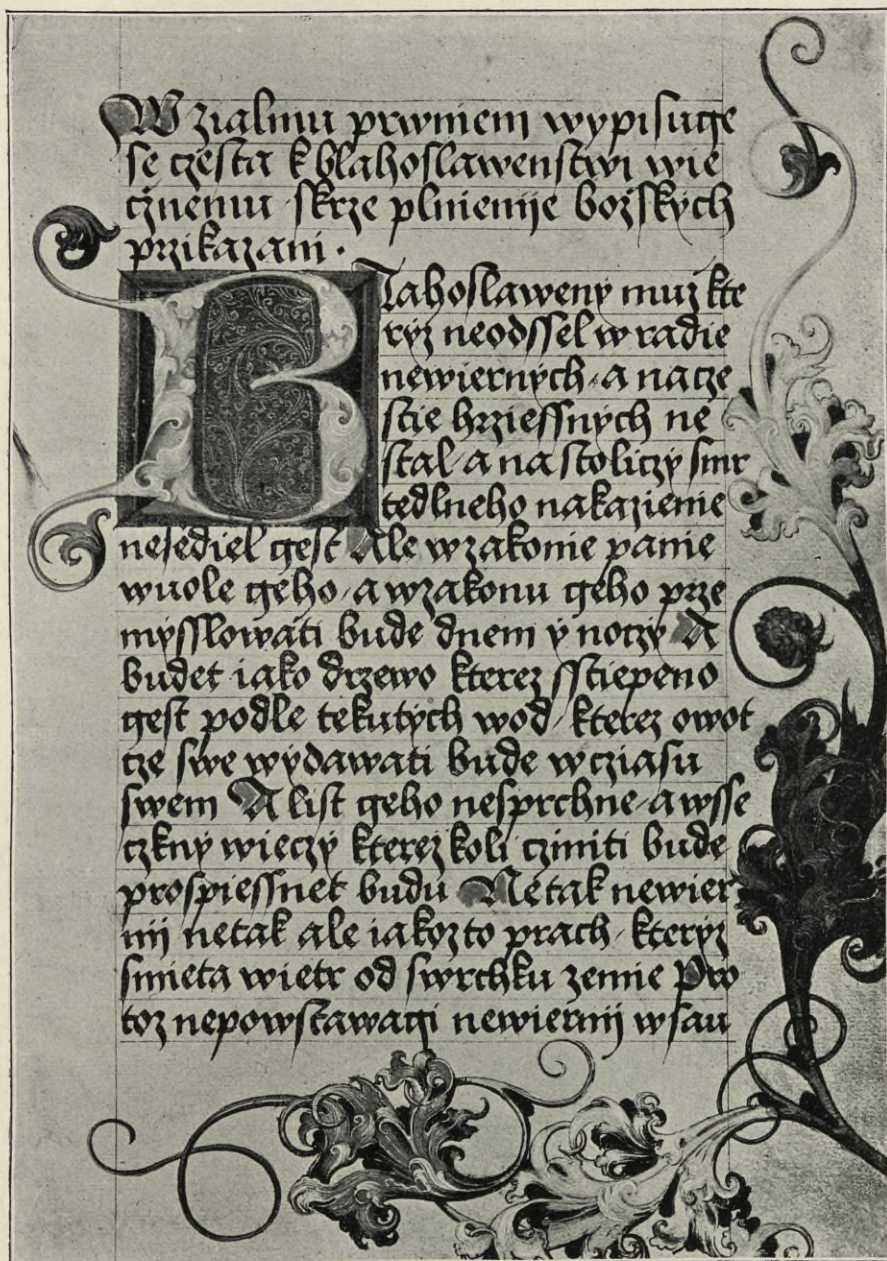 W zialmu prwniem wypisuge
se czesta k blahoslawenstwi wie
cznemu skrze plnienije bozskych
przikazani.
Blahoslaweny muz kte
ryz neodssel w radie
newiernych a na cze
stie hrziessnych ne
stal a na stoliczy smr
tedlneho nakazienie
nesediel gest Ale w zakonie panie
wuole geho a w zakonu geho prze
mysslowati bude dnem y noczy A
budet iako drzewo kterez sstiepeno
gest podle tekutych wod kterez owot
cze swe wydawati bude w cziasu
swem A list geho nesprchne a wsse
czkny wieczy kterez koli cziniti bude
prospiessnet budu Ne tak newier
nij netak ale iakozto prach kteryz
smieta wietr od swrchku zemie Pro
toz nepowstawagi newiernij w sau